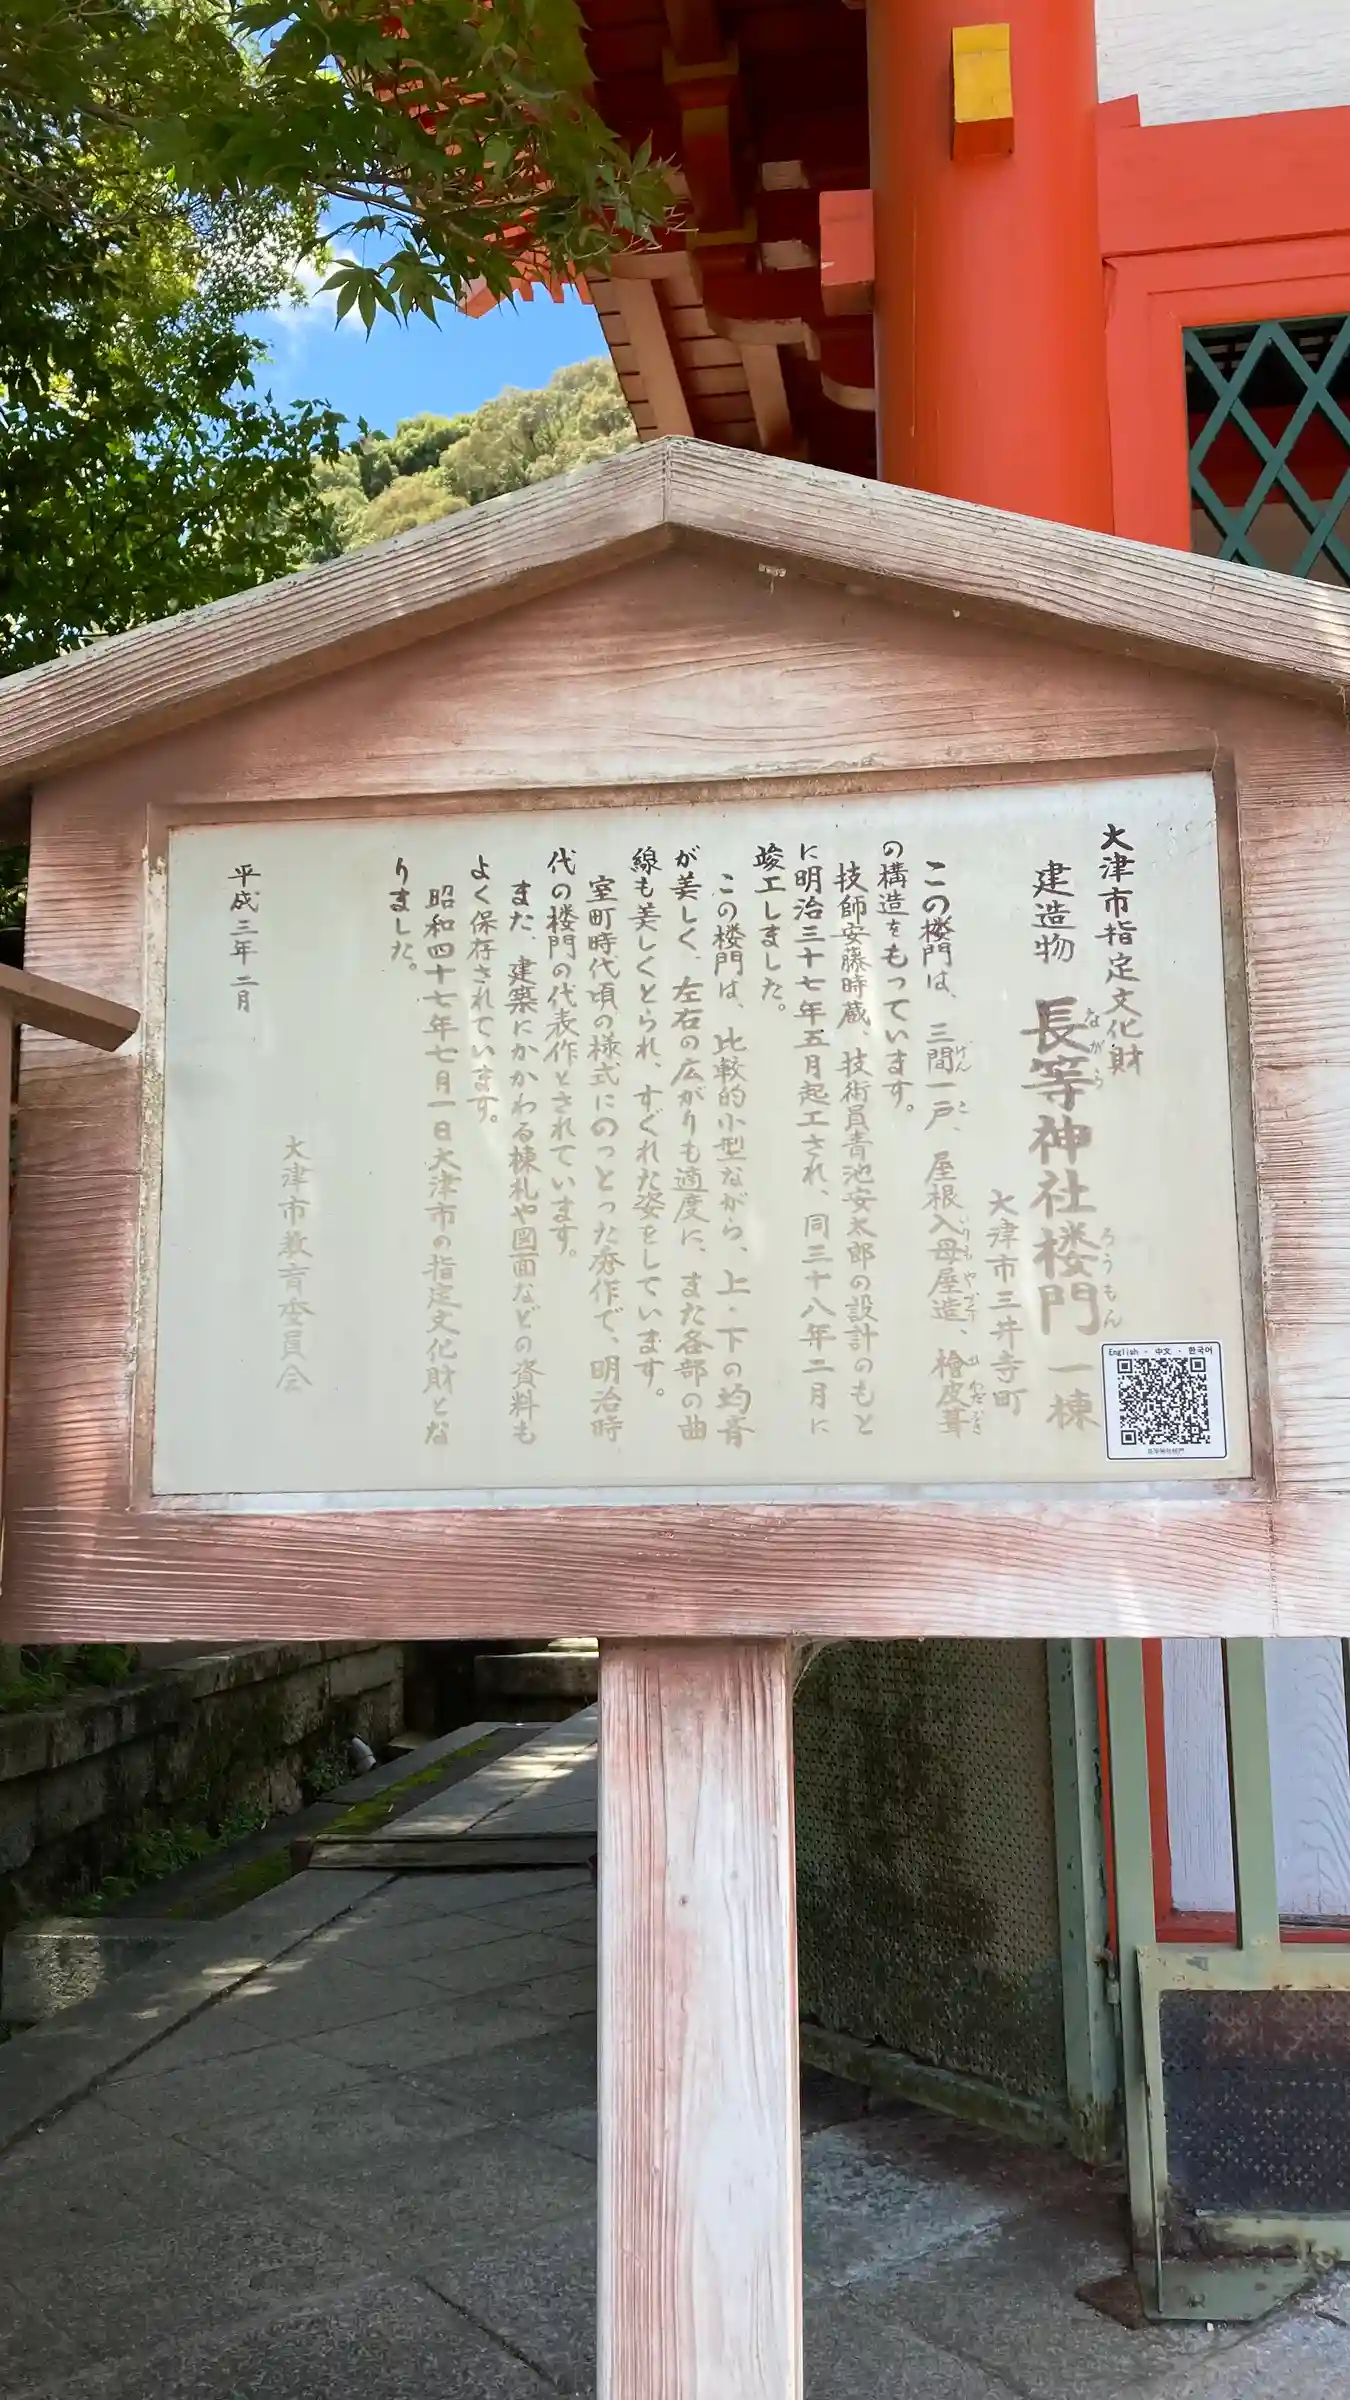 大津市指定文化財
建造物 長等神社楼門 一棟
ながら ろうもん
大津市三井寺町
この楼門は、三間一戸、屋根入母屋造、檜皮葺
げん こ いりもやづくり ひわだぶき
の構造をもっています。
技師安藤時蔵、技術員青池安太郎の設計のもと
に明治三十七年五月起工され、同三十八年二月に
竣工しました。
この楼門は、比較的小型ながら、上・下の均斉
が美しく、左右の広がりも適度に、また各部の曲
線も美しくとられ、すぐれた姿をしています。
室町時代頃の様式にのっとった秀作で、明治時
代の楼門の代表作とされています。
また、建築にかかわる棟札や図面などの資料も
よく保存されています。
昭和四十七年七月一日大津市の指定文化財とな
りました。
大津市教育委員会
平成三年二月
English · 中文 · 한국어
長等神社楼門